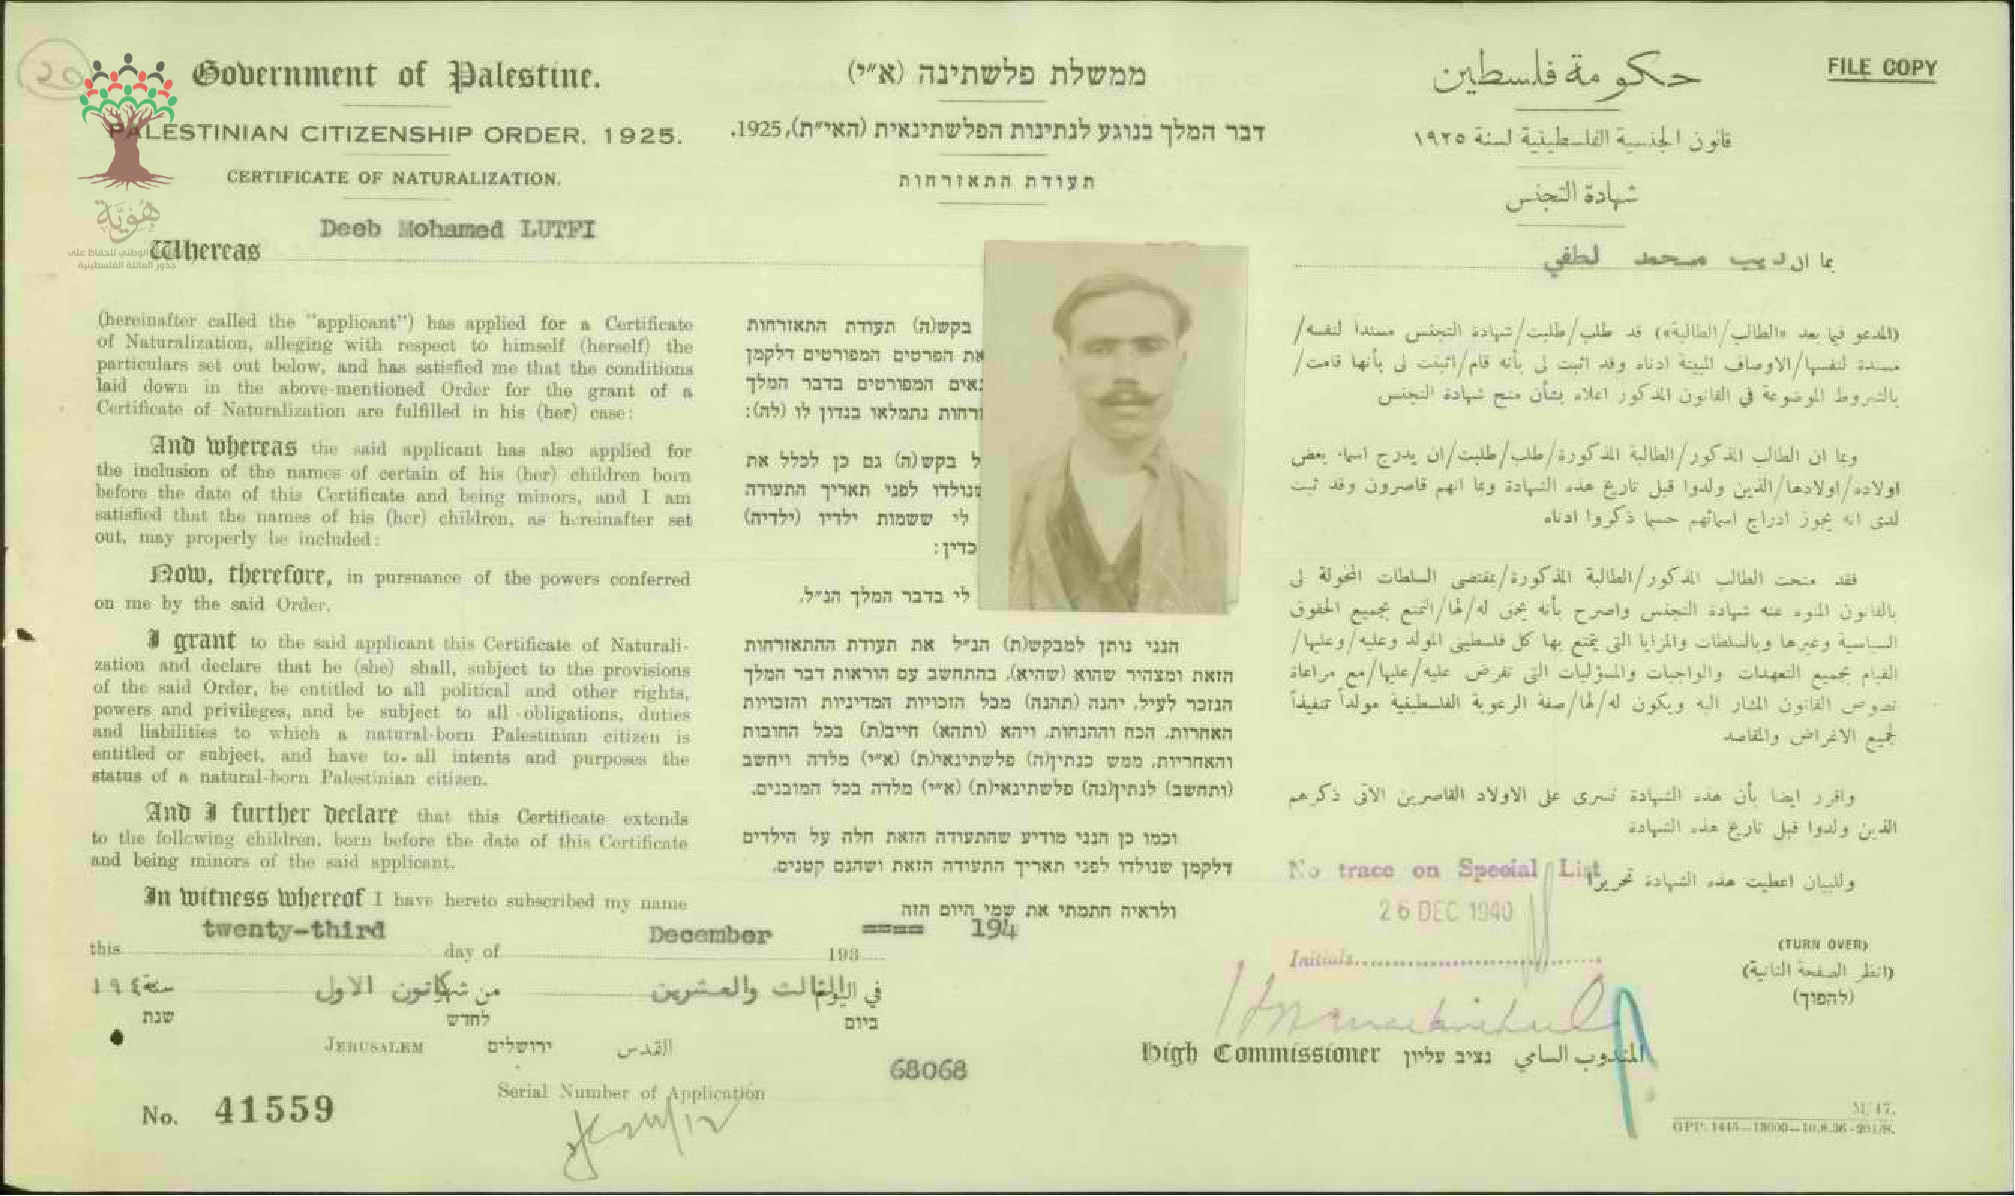 20
Government of Palestine.
PALESTINIAN CITIZENSHIP ORDER, 1925.
CERTIFICATE OF NATURALIZATION.
Deeb Mohamed LUTFI
Whereas
(hereinafter called the "applicant") has applied for a Certificate
of Naturalization, alleging with respect to himself (herself) the
particulars set out below, and has satisfied me that the conditions
laid down in the above-mentioned Order for the grant of a
Certificate of Naturalization are fulfilled in his (her) case:
And whereas the said applicant has also applied for
the inclusion of the names of certain of his (her) children born
before the date of this Certificate and being minors, and I am
satisfied that the names of his (her) children, as hereinafter set
out, may properly be included:
Now, therefore, in pursuance of the powers conferred
on me by the said Order,
I grant to the said applicant this Certificate of Naturali-
zation and declare that he (she) shall, subject to the provisions
of the said Order, be entitled to all political and other rights,
powers and privileges, and be subject to all obligations, duties
and liabilities to which a natural-born Palestinian citizen is
entitled or subject, and have to all intents and purposes the
status of a natural-born Palestinian citizen.
And I further declare that this Certificate extends
to the following children, born before the date of this Certificate
and being minors of the said applicant.
In witness whereof I have hereto subscribed my name
this twenty-third day of December 193 ==== 194
ממשלת פלשתינה (א״י)
דבר המלך בנוגע לנתינות הפלשתינאית (האי״ת), 1925.
תעודת התאזרחות
בקש(ה) תעודת התאזרחות
את הפרטים המפורטים דלקמן
נאים המפורטים בדבר המלך
זרחות נתמלאו בנדון לו (לה):
ל בקש(ה) גם כן לכלל את
שנולדו לפני תאריך התעודה
לי ששמות ילדיו (ילדיה)
כדין:
לי בדבר המלך הנ״ל,
הנני נותן למבקש(ת) הנ״ל את תעודת ההתאזרחות
הזאת ומצהיר שהוא (שהיא), בהתחשב עם הוראות דבר המלך
הנזכר לעיל, יהנה (תהנה) מכל הזכויות המדיניות והזכויות
האחרות, הכח וההנחות, ויהא (ותהא) חייב(ת) בכל החובות
והאחריות, ממש כנתין(ה) פלשתינאי(ת) (א״י) מלדה ויחשב
(ותחשב) לנתין(נה) פלשתינאי(ת) (א״י) מלדה בכל המובנים.
וכמו כן הנני מודיע שהתעודה הזאת חלה על הילדים
דלקמן שנולדו לפני תאריך התעודה הזאת ושהנם קטנים.
ולראיה חתמתי את שמי היום הזה
حكومة فلسطين
FILE COPY
قانون الجنسية الفلسطينية لسنة ١٩٢٥
شهادة التجنس
بما ان ديب محمد لطفي
(المدعو فيما بعد «الطالب/الطالبة») قد طلب/طلبت/شهادة التجنس مسنداً لنفسه/
مسندة لنفسها/الاوصاف المبينة ادناه وقد اثبت لي بأنه قام/اثبتت لي بأنها قامت/
بالشروط الموضوعة في القانون المذكور اعلاه بشأن منح شهادة التجنس
وبما ان الطالب المذكور/الطالبة المذكورة/طلب/طلبت/ان يدرج اسماء بعض
اولاده/اولادها/الذين ولدوا قبل تاريخ هذه الشهادة وبما انهم قاصرون وقد ثبت
لدي انه يجوز ادراج اسمائهم حسبما ذكروا ادناه
فقد منحت الطالب المذكور/الطالبة المذكورة/بمقتضى السلطات المخولة لي
بالقانون المنوه عنه شهادة التجنس واصرح بأنه يحق له/لها/التمتع بجميع الحقوق
السياسية وغيرها وبالسلطات والمزايا التي يتمتع بها كل فلسطيني المولد وعليه/وعليها/
القيام بجميع التعهدات والواجبات والمسؤليات التي تفرض عليه/عليها/مع مراعاة
نصوص القانون المشار اليه ويكون له/لها/صفة الرعوية الفلسطينية مولداً تنفيذاً
لجميع الاغراض والمقاصد
واقرر ايضا بأن هذه الشهادة تسري على الاولاد القاصرين الآتي ذكرهم
الذين ولدوا قبل تاريخ هذه الشهادة
وللبيان اعطيت هذه الشهادة تحريراً
No trace on Special List
26 DEC 1940
Initials
(TURN OVER)
(انظر الصفحة الثانية)
(להפוך)
في اليوم الثالث والعشرين من شهر كانون الاول سنة ١٩٤
ביום לחדש שנת
JERUSALEM ירושלים القدس
High Commissioner נציב עליון المندوب السامي
68068
Serial Number of Application
No. 41559
M. 47.
GPP. 1445—13000—10.8.36-201/S.
هُوِيَّة
الوطني للحفاظ على
جذور العائلة الفلسطينية